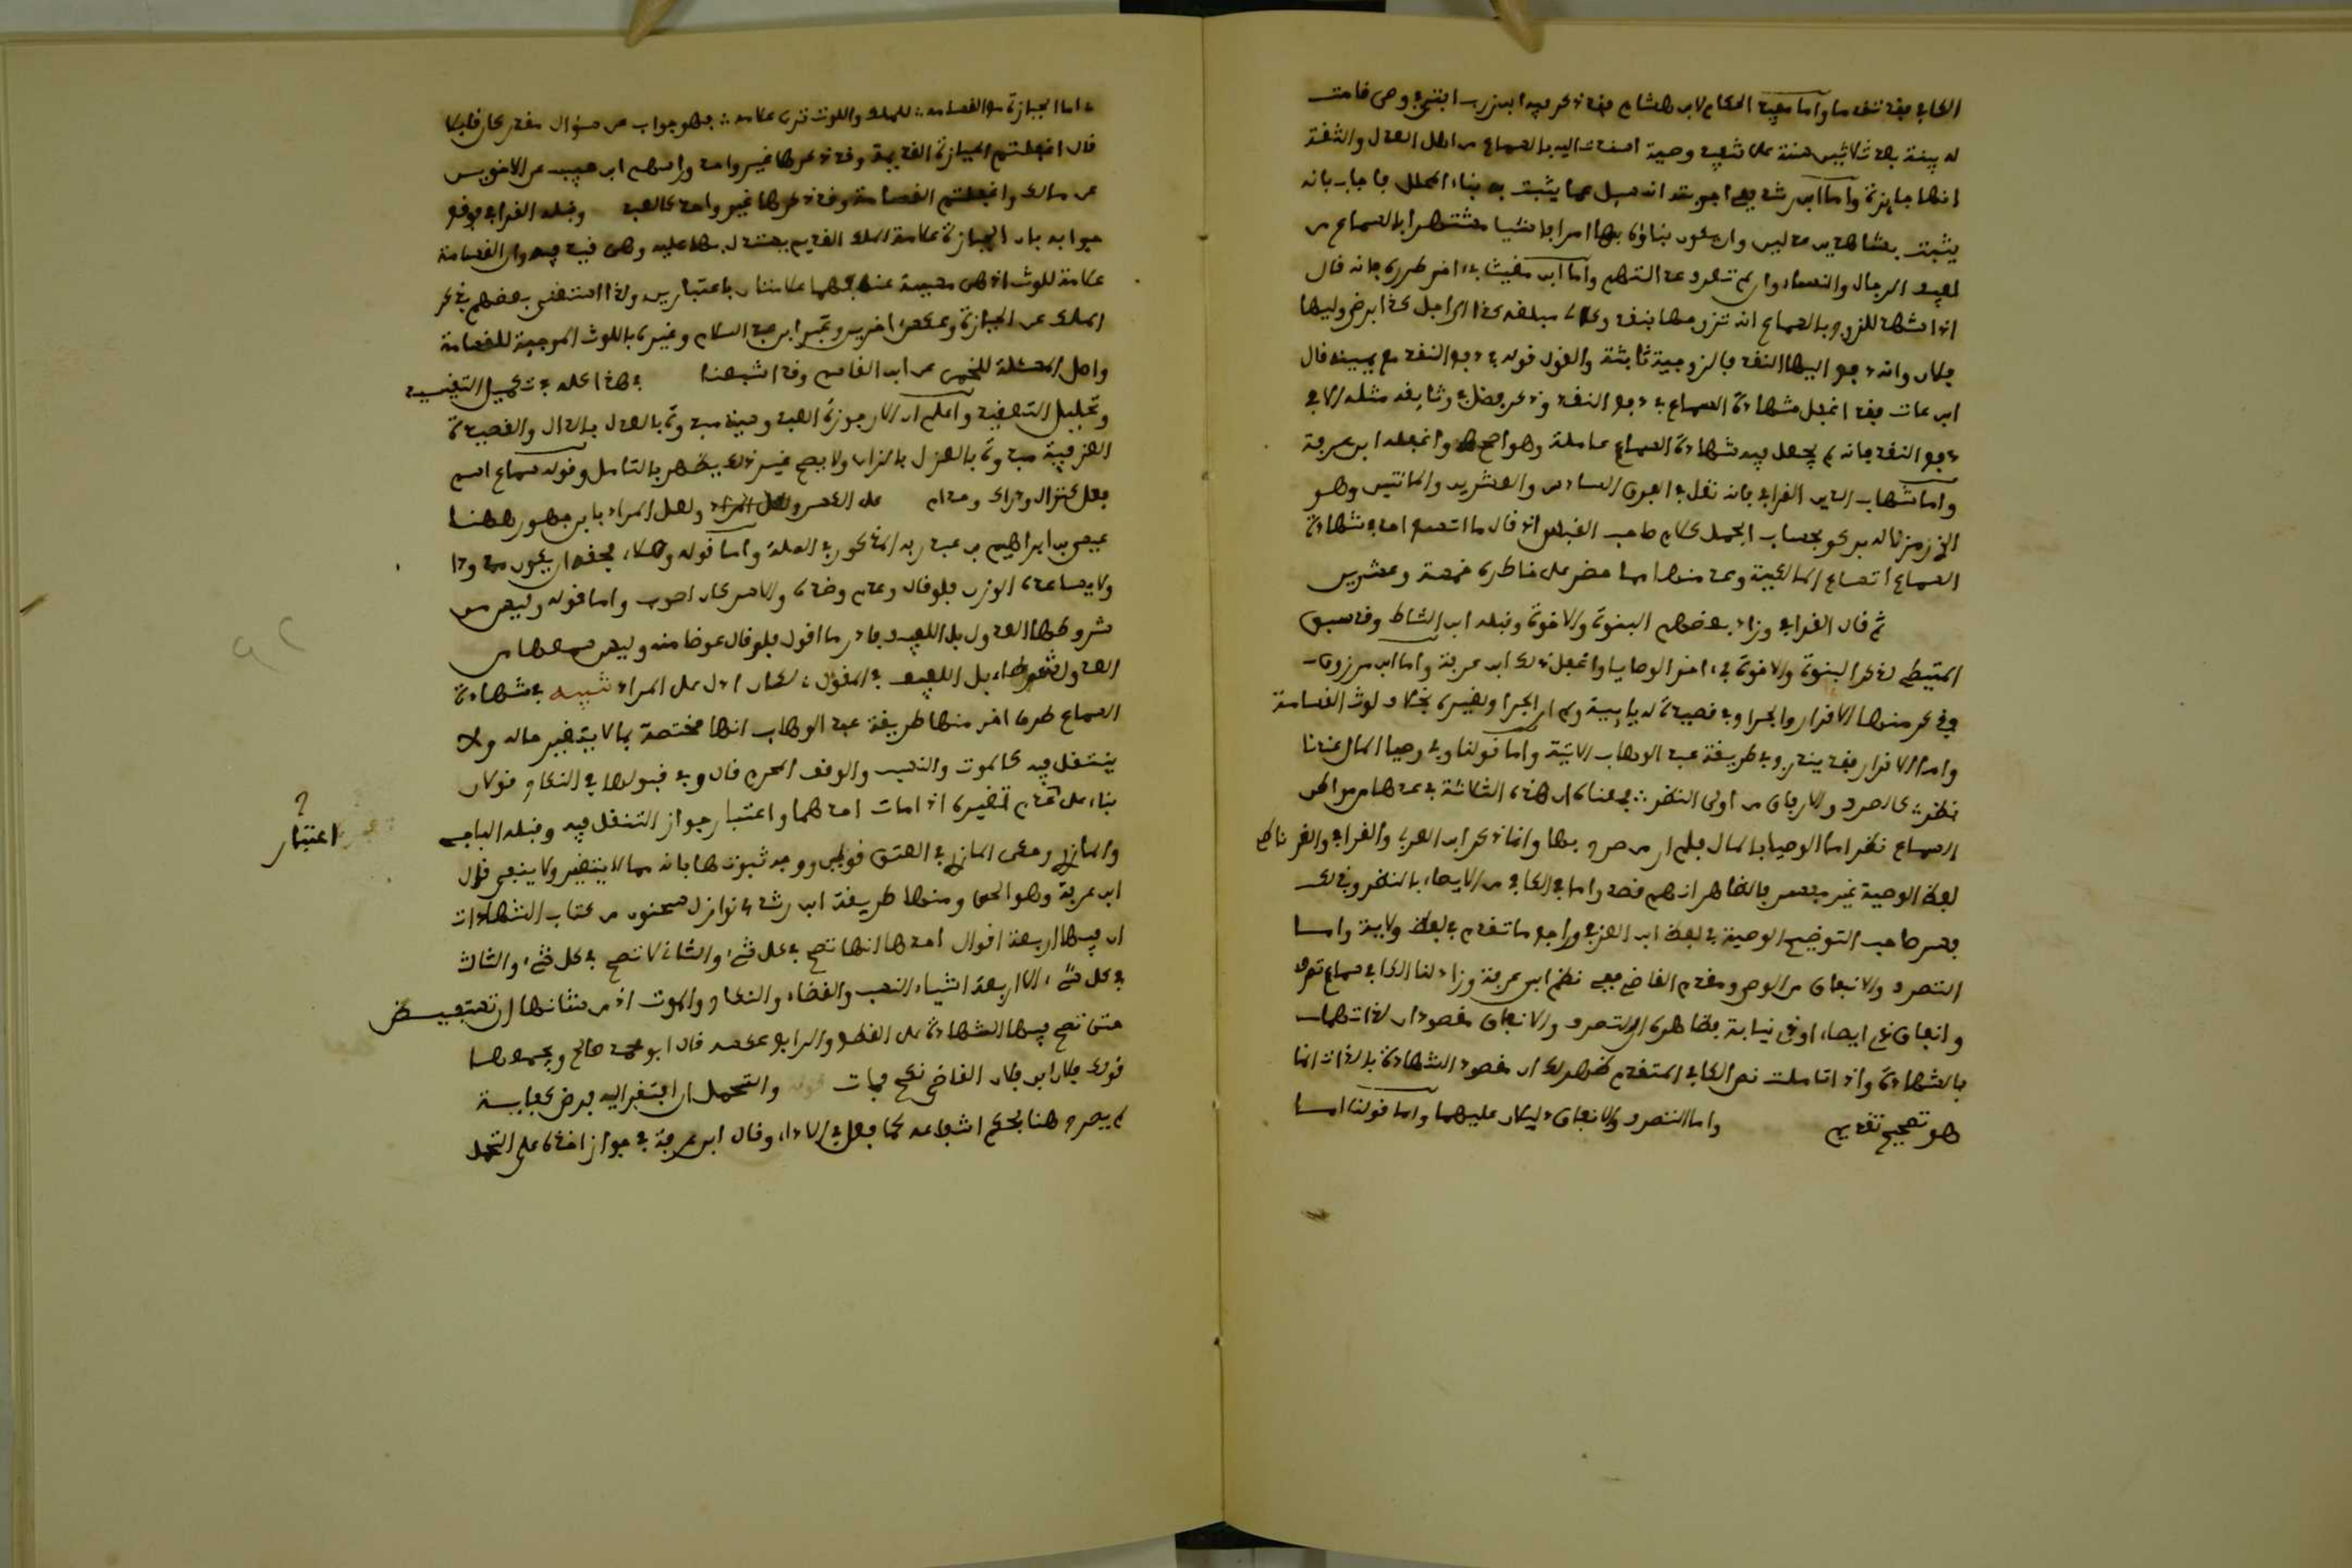 الكافي فقد تقدما واما مفيد الحكام لابن هشام فقد ذكر فيه ابن زرب ابتنى وصي قامت
له بينة بعد ثلاثين سنة على تنفيذ وصية اسندت اليه بالسماع من اهل العدل والثقة
انها جايزة واما ابن رشد ففي اجوبته انه سيل عما يثبت به بناء المحلل فاجاب بانه
يثبت بشاهدين عدلين وان يكون بناؤه بها امرا فاشيا مشتهرا بالسماع من
لفيف الرجال والنساء وان لم تكن عدالتهم واما ابن مغيث ففي اخر طرره فانه قال
اذا شهد للزوج بالسماع انه تزوجها بنقد وكالئ مبلغه كذا الى اجل كذا برضى وليها
فلان وانه دفع اليها النقد فالزوجية ثابتة والقول قوله في دفع النقد مع يمينه قال
ابن عات فقد اغفل شهادة السماع في دفع النقد وذكر فضل في وثايقه مثله الا في
دفع النقد فانه لم يجعل فيه شهادة السماع عاملة وهو اصح واغفله ابن عرفة
واما شهاب الدين القرافي فانه نقل في الفرق السادس والعشرين والمائتين وهو
الذي رمزنا له بركو بحساب الجمل كلام صاحب القبس اذ قال ما اتسع احد في شهادة
السماع اتساع المالكية وعد منها مما حضر على خاطره خمسة وعشرين
ثم قال القرافي وزاد بعضهم البنوة والاخوة وقبله ابن الشاط وقد سبق
المتيطي لذكر البنوة والاخوة في اخر الوصايا واغفل ذلك ابن عرفة واما ابن مرزوق
فذكر منها الاقرار والجرا وفي قصيدة له يايية ولم ار الجرا ولغيره بخلاف لوث القسامة
واما الاقرار فقد يندرج في طريقة عبد الوهاب الاتية واما قولنا وفي وصيا المال عندنا
نظر كالصرف والارفاق من اولى النظر فمعناه ان هذه الثلاثة في عدها من مواطن
السماع نظر اما الوصيا بالمال فلم ار من صرح بها وانما ذكر ابن العربي والقرافي والغرناطي
لفظ الوصية غير مفسر فالظاهر انهم قصدوا ما في الكافي من الايصاء بالنظر وبذلك
فسر صاحب التوضيح الوصية في لفظ ابن العربي وراجع ما تقدم في لفظ ولاية واما
التصرف والانفاق من الوصي ومقدم القاضي ففي نظم ابن عرفة وزاد لنا الكافي سماع تصرف
وانفاق ذي ايصاء او ذي نيابة فظاهره ان التصرف والانفاق مقصودان لذاتهما
بالشهادة واذا تاملت نص الكافي المتقدم ظهر لك ان مقصود الشهادة بالذات انما
هو تصحيح تقديم واما التصرف والانفاق دليلان عليهما واما قولنا اما
اما الحيازة مع القسامه للملك واللوث ترى علامه فهو جواب عن سؤال مقدر كان قايلا
قال اغفلتم الحيازة القديمة وقد ذكرها غير واحد وراسهم ابن حبيب عن الاخوين
عن مالك واغفلتم القسامة وقد ذكرها غير واحد كالعبد وقبله القرافي فوقع
جوابه بان الحيازة علامة الملك القديم يستدل بها عليه وهي قيد فيه وان القسامة
علامة للوث اذ هي مسببة عنه فهما علامتان باعتبارين ولذا استغنى بعضهم بذكر
الملك عن الحيازة وعكس اخرين وعبر ابن عبد السلام وغيره باللوث الموجبة للقسامة
واصل المسئلة للخمي عن ابن القاسم وقد اشبعنا في هذا كله في تكميل التقييد
وتحليل التعقيد واعلم ان الارجوزة العبد وحينه سبد وة بالعدل بالدال والقصيدة
العزفية سبد وة بالعزل بالزاي ولا يصح غير ذلك يظهر بالتامل وقوله سماع اسم
فعل كنزال ودراك وحذام على الكسر ولعل المراد بابن جهور هاهنا
عيسى بن ابراهيم بن عبد ربه المذكور في الصلة واما قوله وهلا فحقه ان يكون
ولا يساعده الوزن فلو قال وعدم وضده والاسر كان اصوب واما قوله وليس من
شروطها العدول بل اللفيف فادر ما اقول فلو قال عوضا منه وليس من
العدول شرطها بل اللفيف في المقول لكان ادل على المراد تنبيه في شهادة
السماع طرق اخر منها طريقة عبد الوهاب انها مختصة بما لا يتغير حاله ولا
ينتقل فيه كالموت والنسب والوقف المحرم قال وفي قبولها في النكاح قولان
بناء على عدم تغيره اذا مات احدهما واعتبار جواز التنقل فيه وقبله الباجي
والمازري وحكى المازري في العتق قولين ووجد ثبوتها بانه مما لا يتغير ولا ينبغي قال
ابن عرفة وهو الحق ومنها طريقة ابن رشد في نوازل سحنون من كتاب الشهادات
ان فيها اربعة اقوال احدها انها تصح في كل شيء والثاني لا تصح في كل شيء والثالث
في كل شيء الا اربعة اشياء النسب والقضاء والنكاح والموت اذ من شانها ان تستفيض
حتى تصح فيها الشهادة على القطع والرابع عكسه قال ابو محمد صالح ويجمعها
قولك فلان ابن فلان القاضي نكح فمات قوله والتحمل ان افتقر اليه فرض كفاية
لم يصرح هنا بحكم اشباعه كما فعل في الاداء وقال ابن عرفة في جواز اخذه على التحمل
اعتبار
؟